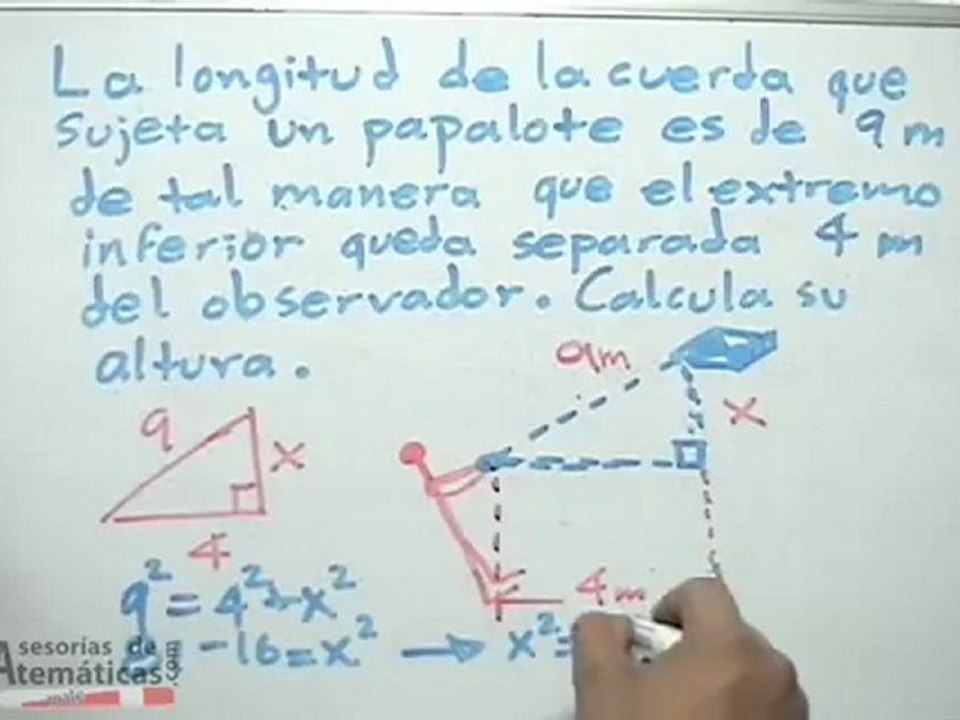 La longitud de la cuerda que
sujeta un papalote es de 9 m
de tal manera que el extremo
inferior queda separada 4 m
del observador. Calcula su
altura.
9m
x
9
x
4
4 m
9² = 4² + x²
-16 = x² → x² =
Asesorías de
Matemáticas.com